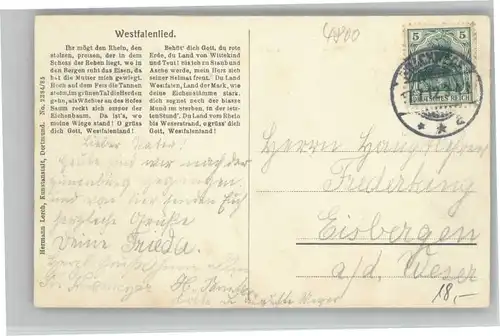 4800
Westfalenlied.
Ihr mögt den Rhein, den
stolzen, preisen, der in dem
Schoss der Reben liegt, wo in
den Bergen ruht das Eisen, da
hat die Mutter mich gewiegt.
Hoch auf dem Fels die Tannen
stehn, im grünen Tal die Herden
gehn, als Wächter an des Hofes
Saum reckt sich empor der
Eichenbaum. Da ist's, wo
meine Wiege stand! O grüss
dich Gott, Westfalenland!
Behüt' dich Gott, du rote
Erde, du Land von Wittekind
und Teut! bis ich zu Staub und
Asche werde, mein Herz sich
seiner Heimat freut. Du Land
Westfalen, Land der Mark, wie
deine Eichenstämme stark,
dich segnet noch der blasse
Mund im sterben, in der letz-
ten Stund'. Du Land vom Rhein
bis Weserstrand, o grüss' dich
Gott, Westfalenland!
Hermann Lorch, Kunstanstalt, Dortmund. No. 2284/83
5 5
DEUTSCHES REICH
Lieber Vater!
Heute sind wir nach der
und von hier senden Euch
herzliche Grüße
Deine Frieda.
Herrn Hauptlehrer
Frederking
Eisbergen
a/d. Weser
18,-